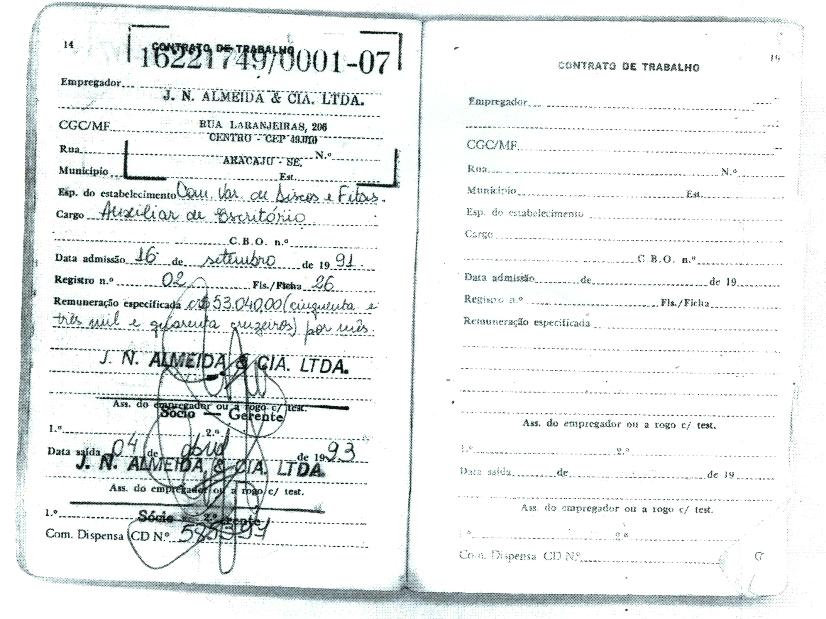 14
CONTRATO DE TRABALHO
16221749/0001-07
Empregador
J. N. ALMEIDA & CIA. LTDA.
CGC/MF
RUA LARANJEIRAS, 206
CENTRO - CEP 49.010
Rua N.º
ARACAJU - SE.
Município Est.
Esp. do estabelecimento Com. Var. de Discos e Fitas.
Cargo Auxiliar de Escritório
C.B.O. n.º
Data admissão 16 de setembro de 1991
Registro n.º 02 Fls./Ficha 26
Remuneração especificada Cr$ 53.040,00 (cinquenta e
três mil e quarenta cruzeiros) por mês.
J. N. ALMEIDA & CIA. LTDA.
Ass. do empregador ou a rogo c/ test.
Sócio — Gerente
1.º 2.º
Data saída 04 de abril de 1993
J. N. ALMEIDA & CIA. LTDA
Ass. do empregador ou a rogo c/ test.
1.º 2.º
Sócio — Gerente
Com. Dispensa CD N.º
15
CONTRATO DE TRABALHO
Empregador
CGC/MF
Rua N.º
Município Est.
Esp. do estabelecimento
Cargo
C.B.O. n.º
Data admissão de de 19
Registro n.º Fls./Ficha
Remuneração especificada
Ass. do empregador ou a rogo c/ test.
1.º 2.º
Data saída de de 19
Ass. do empregador ou a rogo c/ test.
1.º 2.º
Com. Dispensa CD N.º